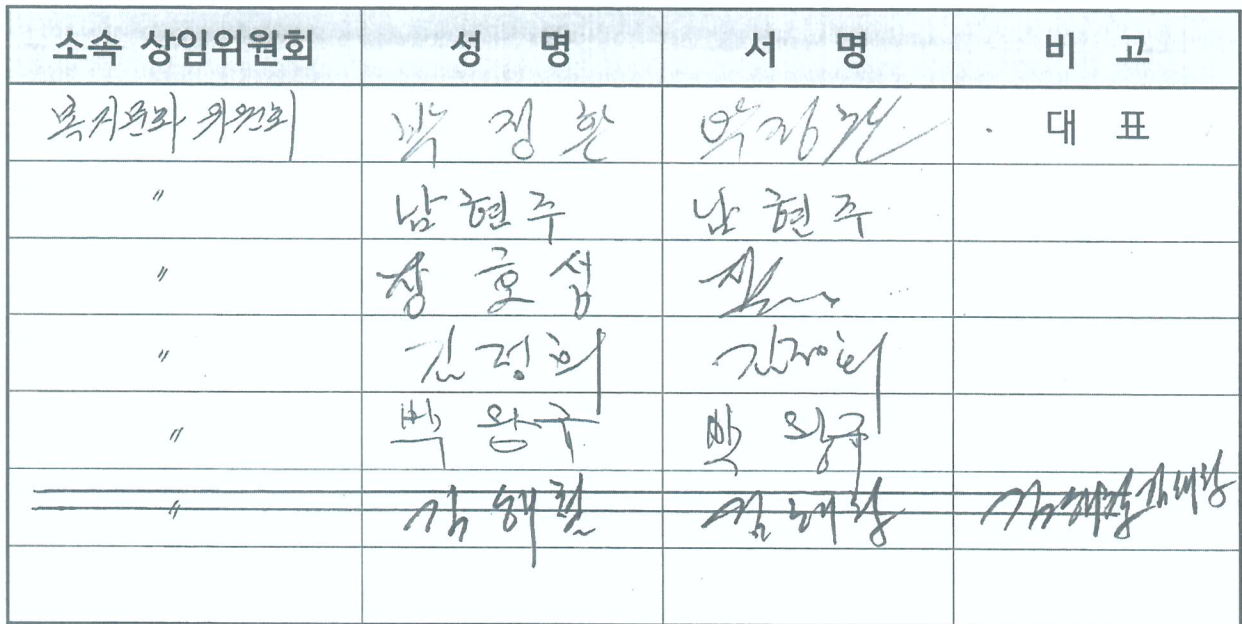 소속 상임위원회 성 명 서 명 비 고
복지문화 위원회 박 정 환 박정환 대 표
〃 남 현 주 남 현 주
〃 장 호 섭
〃 김 정 희 김정희
〃 박 왕 구 박 왕구
〃 김